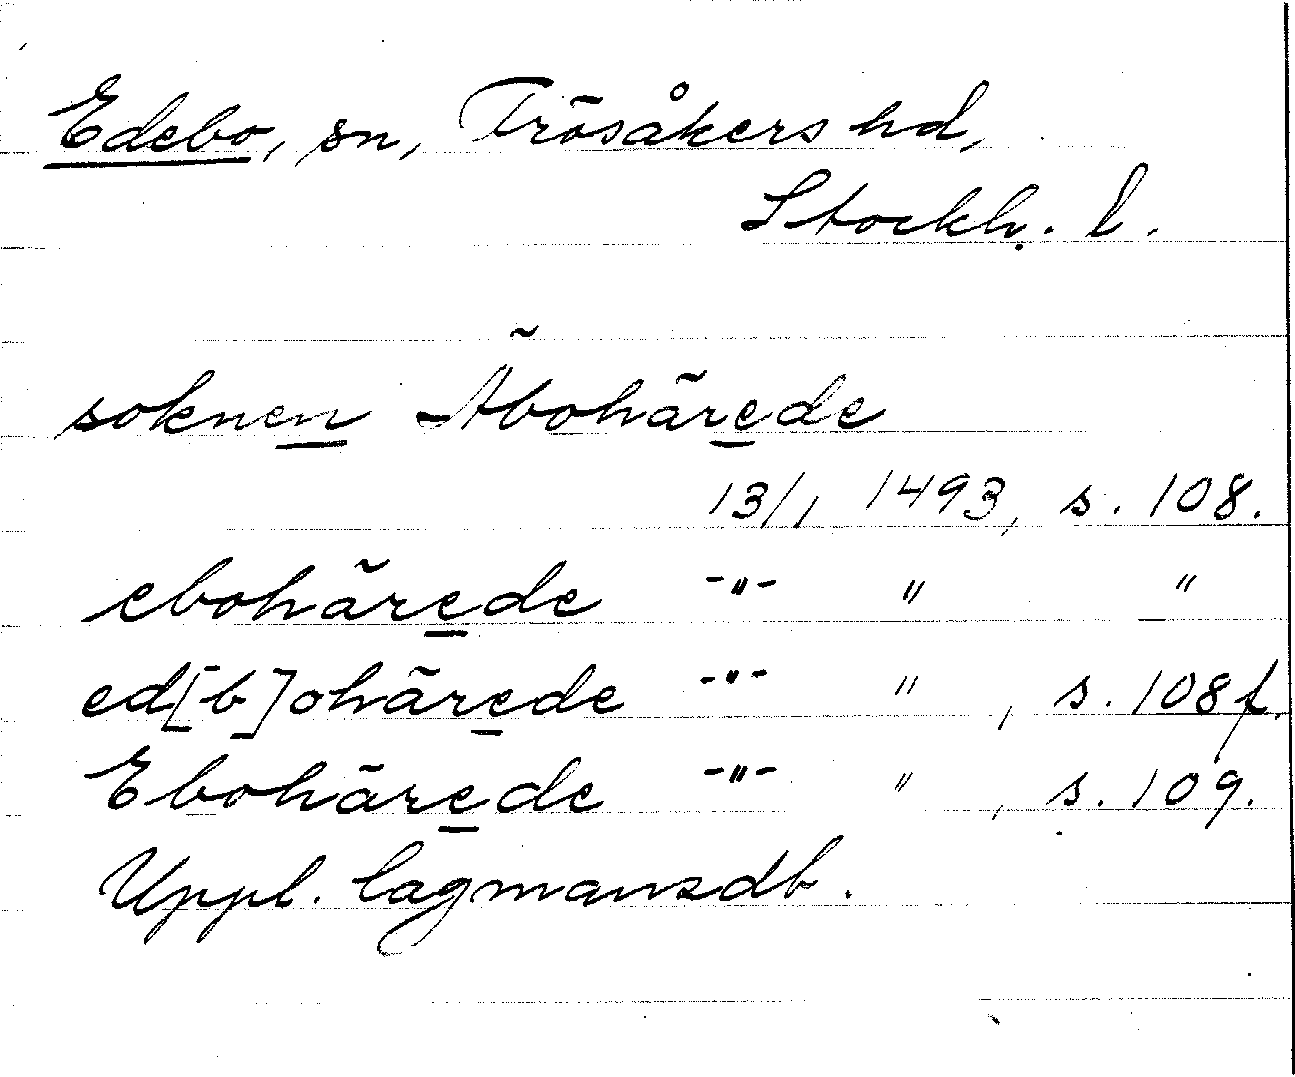 Edebo, sn, Frösåkers hd,
Stockh. l.
soknen Äbohärede
13/1 1493, s. 108.
ebohärede -"- " "
ed[b]ohärede -"- " , s. 108 f.
Ebohärede -"- " , s. 109.
Uppl. lagmansdb.